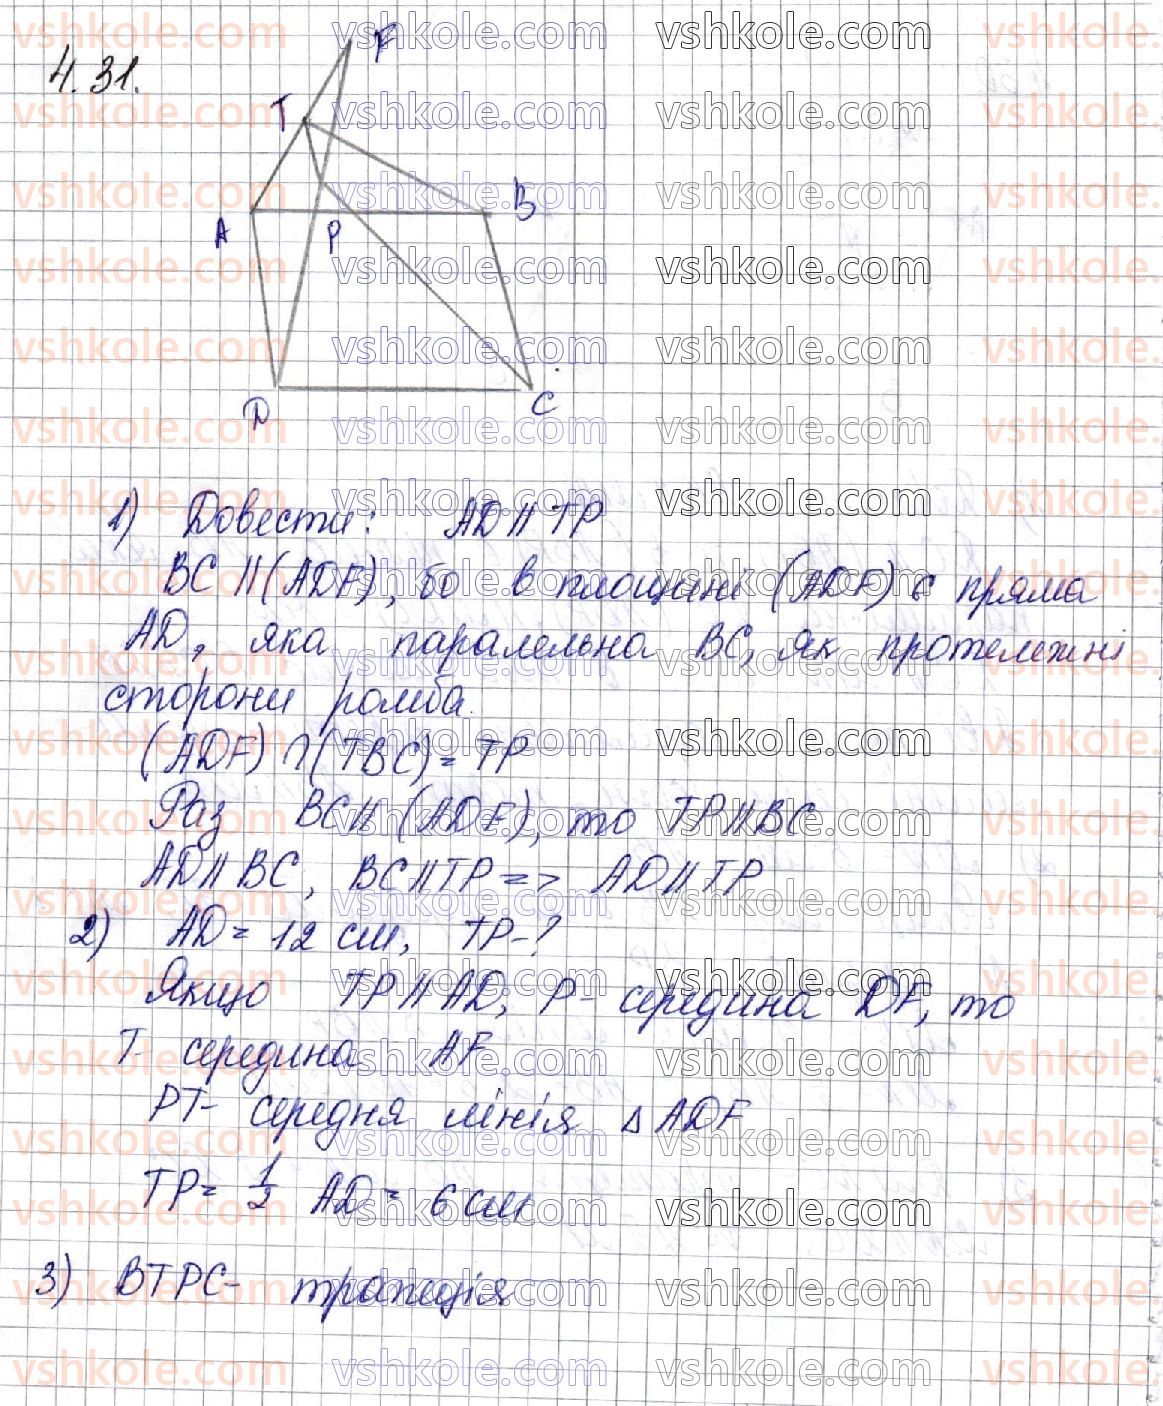 4.31.
F
T
A
P
B
D
C
1) Довести: AD || TP
BC || (ADF), бо в площині (ADF) є пряма
AD, яка паралельна BC, як протележні
сторони ромба.
(ADF) ∩ (TBC) = TP
Раз BC || (ADF), то TP || BC
AD || BC, BC || TP => AD || TP
2) AD = 12 см, TP - ?
Якщо TP || AD, P - середина DF, то
T - середина AF
PT - середня лінія △ ADF
TP = 1/2 AD = 6 см
3) BTPC - трапеція
vshkole.com